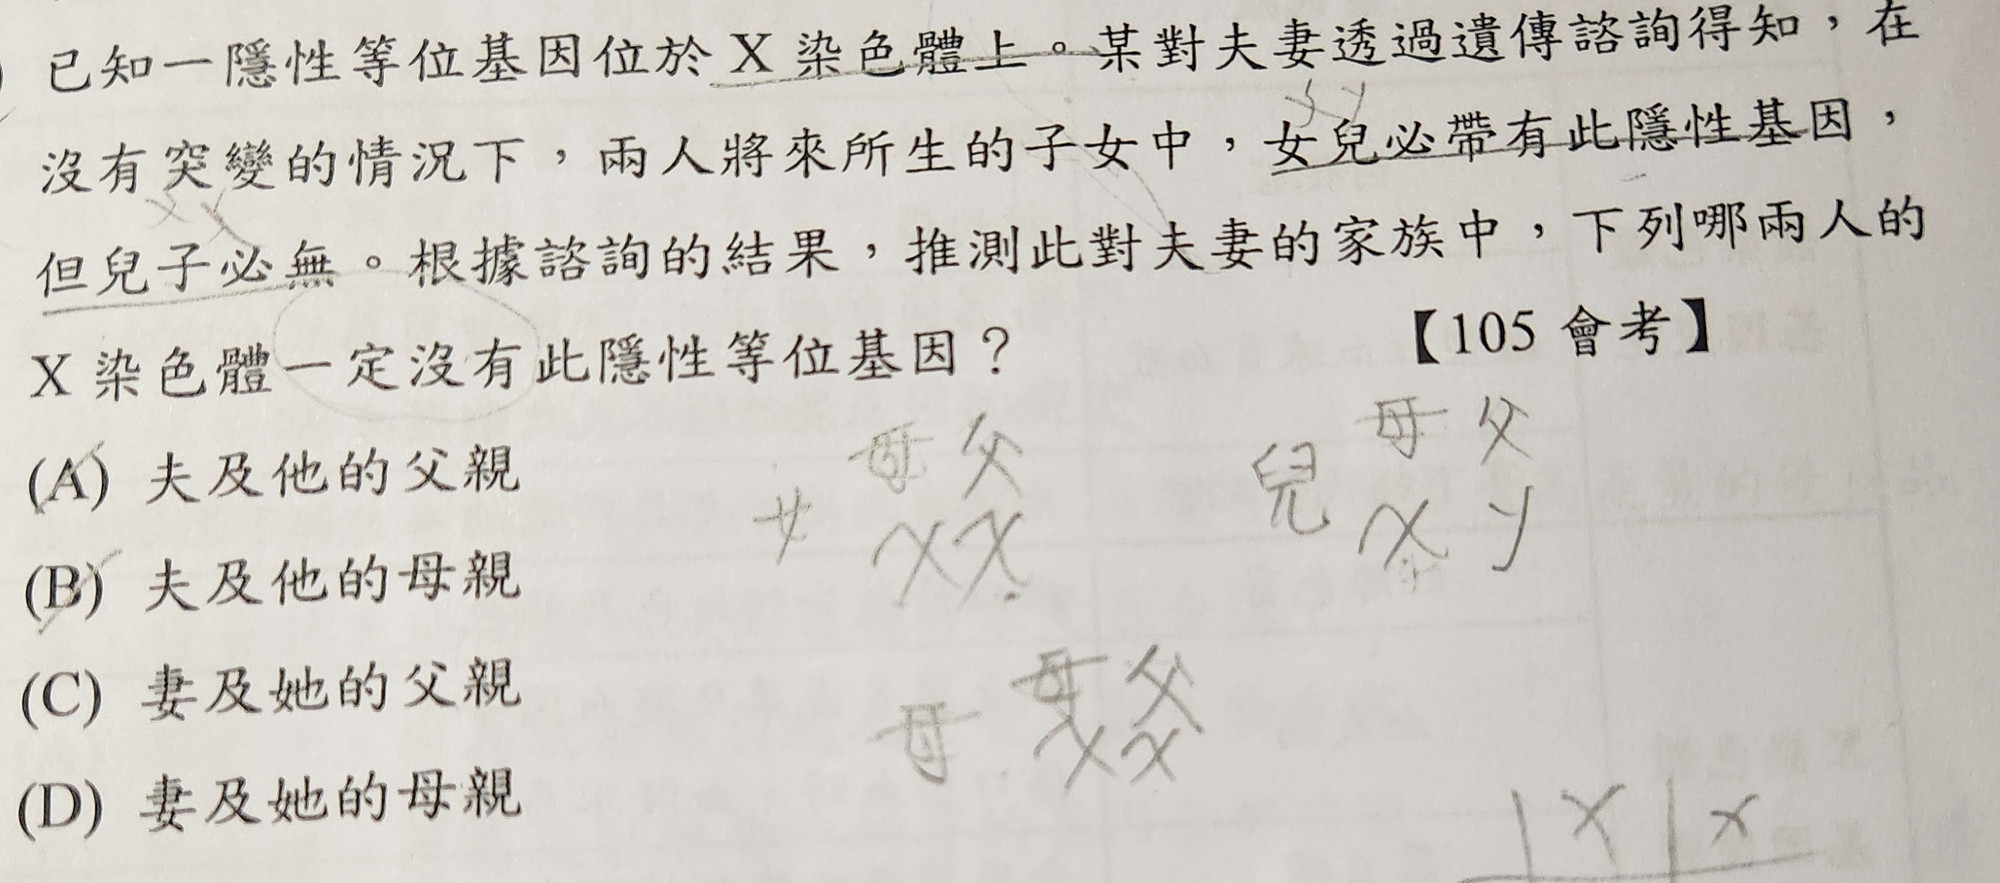 已知一隱性等位基因位於 X 染色體上。某對夫妻透過遺傳諮詢得知，在
XY
沒有突變的情況下，兩人將來所生的子女中，女兒必帶有此隱性基因，
XX
但兒子必無。根據諮詢的結果，推測此對夫妻的家族中，下列哪兩人的
X 染色體一定沒有此隱性等位基因？
【105 會考】
(A) 夫及他的父親
母 父
女 X X
母 父
兒 X Y
(B) 夫及他的母親
(C) 妻及她的父親
母 父
母 X X
(D) 妻及她的母親
X X